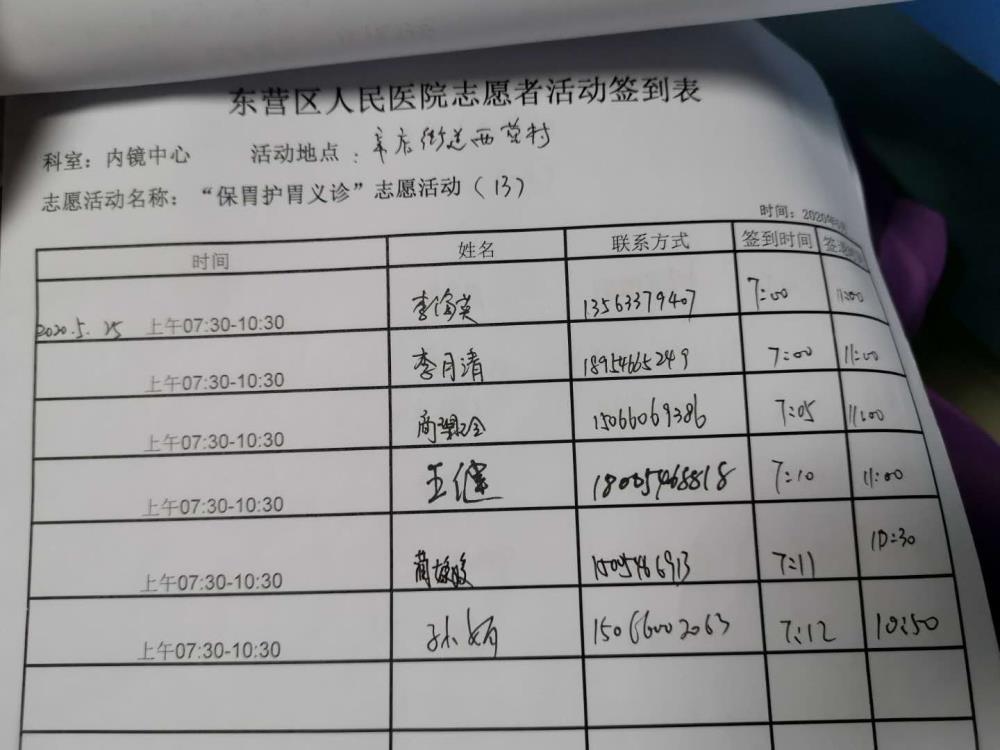 东营区人民医院志愿者活动签到表
科室：内镜中心 活动地点：辛店街道西营村
志愿活动名称：“保胃护胃义诊”志愿活动（13）
时间：2020年
时间 姓名 联系方式 签到时间
2020.5.25 上午07:30-10:30 李海英 13563379407 7:00 11:00
上午07:30-10:30 李月清 18954665249 7:00 11:00
上午07:30-10:30 商 15066069386 7:05 11:00
上午07:30-10:30 王健 18005468818 7:10 11:00
上午07:30-10:30 7:11 10:30
上午07:30-10:30 孙娟 15066002063 7:12 10:50